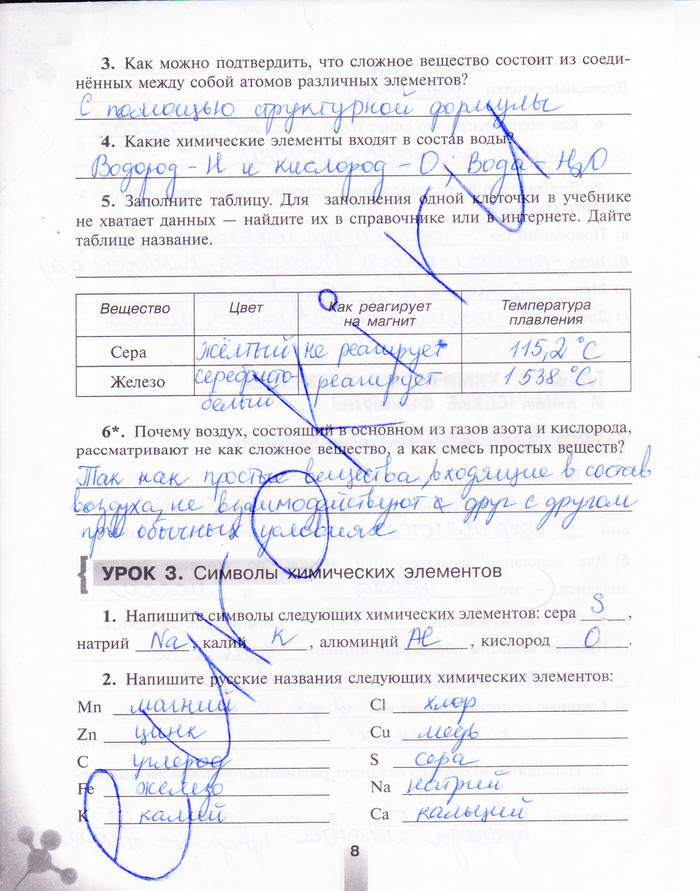 3. Как можно подтвердить, что сложное вещество состоит из соеди-
нённых между собой атомов различных элементов?
С помощью структурной формулы
4. Какие химические элементы входят в состав воды?
Водород - H и кислород - O, Вода - H2O
5. Заполните таблицу. Для заполнения одной клеточки в учебнике
не хватает данных — найдите их в справочнике или в интернете. Дайте
таблице название.
Вещество Цвет Как реагирует на магнит Температура плавления
Сера жёлтый не реагирует 115,2 °C
Железо серебристо-белый реагирует 1538 °C
6*. Почему воздух, состоящий в основном из газов азота и кислорода,
рассматривают не как сложное вещество, а как смесь простых веществ?
Так как простые вещества, входящие в состав
воздуха, не взаимодействуют друг с другом
при обычных условиях
УРОК 3. Символы химических элементов
1. Напишите символы следующих химических элементов: сера S,
натрий Na, калий K, алюминий Al, кислород O.
2. Напишите русские названия следующих химических элементов:
Mn магний Cl хлор
Zn цинк Cu медь
C углерод S сера
Fe железо Na натрий
K калий Ca кальций
8